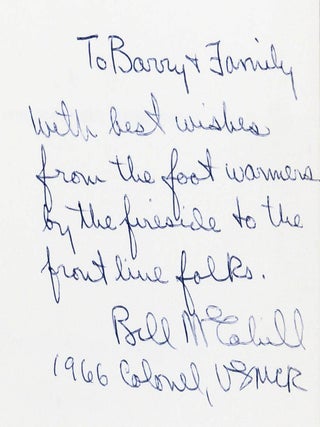 To Barry & Family
With best wishes
from the foot warmers
by the fireside to the
front line folks.
Bill McCahill
1966 Colonel, USMCR